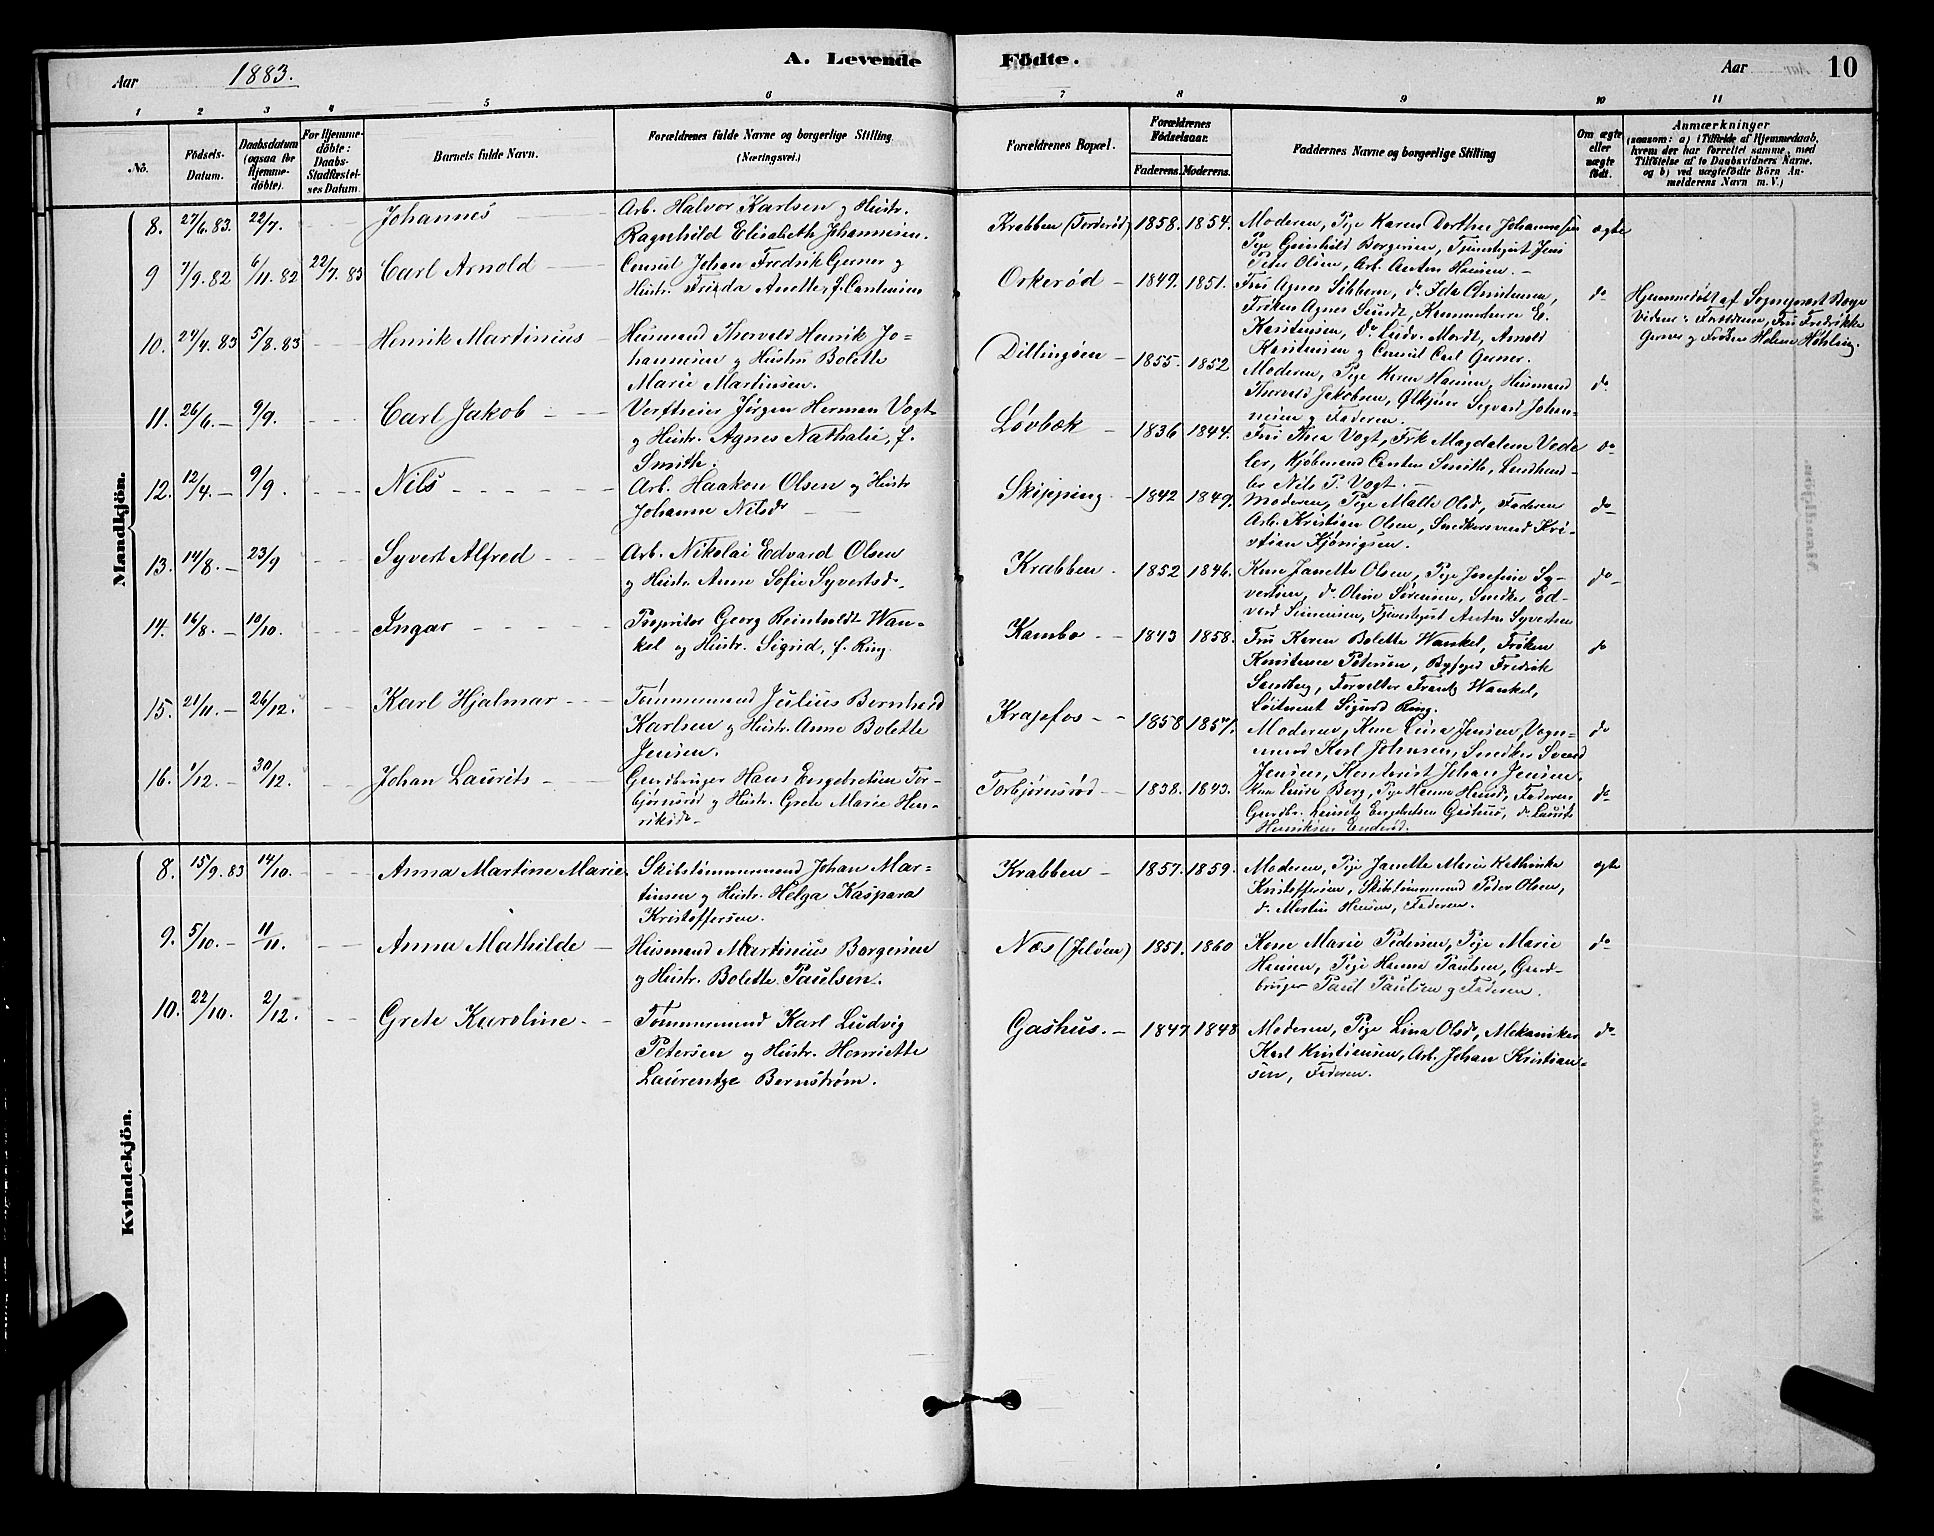 Aar 1883. A. Levende Födte. Aar 10
1 2 3 4 5 6 7 8 9 10 11
No. Födsels-Datum. Daabsdatum (ogsaa for Hjemmedöbte). For Hjemmedöbte: Daabs-Stadfæstelses Datum. Barnets fulde Navn. Forældrenes fulde Navne og borgerlige Stilling (Næringsvei.) Forældrenes Bopæl. Forældrenes Födselsaar. Faderens. Moderens. Faddernes Navne og borgerlige Stilling Om ægte eller uægte födt. Anmærkninger (saasom: a) i Tilfælde af Hjemmedaab, hvem der har forrettet samme, med Tilföielse af to Daabsvidners Navne. og b) ved uægtefödte Börn Anmelderens Navn m. V.)
Mandkjön.
8. 27/6. 83. 22/7. Johannes
Arb. Halvor Karlsen og Hustr.
Ragnhild Elisabeth Johannesen.
Krabben (Torderød) 1858. 1854.
Moderen, Pige Karen Dorthea Johannessen
Pige Gunhild Borgersen, Tjenestegut Jens
Peter Olsen, Arb. Anton Hansen. –
ægte
9 7/9. 82 6/11. 82 22/7. 83 Carl Arnold
Consul Johan Fredrik Gerner og
Hustr. Frida Anette, f.
Orkerød – 1849. 1851.
Fru Agnes Sibbern, do Ida Christensen,
Frøken Agnes Sundt, Kammerherre
Karstensen, do Ludv. Mordt, Arnold
Karstensen og Consul Carl Gerner.
do
Hjemmedøbt af Sogneprest
Vidner: Forældrene, Fru Fredrikke
Gerner og Frøken Helene
10. 24/4. 83 5/8. 83 Henrik Martinius
Husmand Thorvald Henrik Jo-
hannesen og Hustru Bolette
Marie Martinsen.
Dillingøen – 1855. 1852
Moderen, Pige Karen Hansen, Husmand
Thorvald Jakobsen, Ølkjører Sigvard Johan-
nesen og Faderen.
do
11. 26/6. – 9/9. Carl Jakob
Verftseier Jørgen Herman Vogt
og Hustr. Agnes Nathalie, f.
Smith.
Løvbæk – 1836 1844.
Fru Thea Vogt, Frk Magdalene Vede-
ler, Kjøbmand Carsten Smith,
Nils P. Vogt. –
do
12. 12/4. – 9/9. Nils
Arb. Haakon Olsen og Hustr
Johanne Nilsdr
Skipping. – 1842 1849.
Moderen, Pige Malla Olsd., Faderen
Arb. Kristian Olsen, Snedkersvend Kri-
stian Kjønigsen.
do
13. 14/8. – 23/9 Syvert Alfred
Arb. Nikolai Edvard Olsen
og Hustr. Anne Sofie Syvertsdr.
Krabben. 1852 1846.
Kone Janette Olsen, Pige Josefine Sy-
vertsen, do Oline Sørensen, Smed Ed-
vard Simensen, Tjenestegut Anton Syvertsen
do
14. 16/8. – 10/10. Ingar
Proprietær Georg Reinholdt Wan-
kel og Hustr. Sigrid, f. Ring.
Kambo – 1843 1858.
Fru Karen Bolette Wankel, Frøken
Petersen, Byfoged Fredrik
Sandberg, Forvalter Frantz Wankel,
Løitnant Sigurd Ring.
do
15. 21/11. – 26/12. Karl Hjalmar
Tømmermand Julius Bernhard
Karlsen og Hustr. Anne Bolette
Jensen.
Krapfos – 1858 1857.
Moderen, Kone Lina Jensen, Vogn-
mand Karl Johansen, Snedker Svend
Jensen, Kontorist Johan Jensen.
do
16. 1/12. – 30/12. Johan Laurits
Gaardbruger Hans Engebretsen Tor-
bjørnsrød og Hustr. Grete Marie Hen-
riksdr.
Torbjørnsrød – 1838. 1843.
Kone Berg, Pige Hanna Hansd., Faderen
Gaardbr. Laurits Engebretsen Gashus, do Laurits
Henriksen
do
Kvindekjön.
8. 15/9. 83 14/10. Anna Martine Marie.
Skibstømmermand Johan Mar-
tinsen og Hustr. Helga Kaspara
Kristoffersen.
Krabben – 1857. 1859.
Moderen, Pige Janette Marie Kathinka
Kristoffersen, Skibstømmermand Peder Olsen,
do Martin Hansen, Faderen.
ægte
9. 5/10. – 11/11. Anna Mathilde
Husmand Martinius Borgersen
og Hustr. Bolette Paulsen.
Næs (Jeløen) 1851. 1860
Kone Marie Pedersen, Pige Marie
Hansen, Pige Hanna Paulsen, Gaard-
bruger Paul Paulsen og Faderen.
do
10. 22/10. 2/12. Grete Karoline
Tømmermand Karl Ludvig
Petersen og Hustr. Henriette
Laurentze Bernstrøm.
Gashus. – 1847 1848
Moderen, Pige Lina Olsdr, Mekaniker
Karl Kristiansen, Arb. Johan Kristian-
sen, Faderen.
do